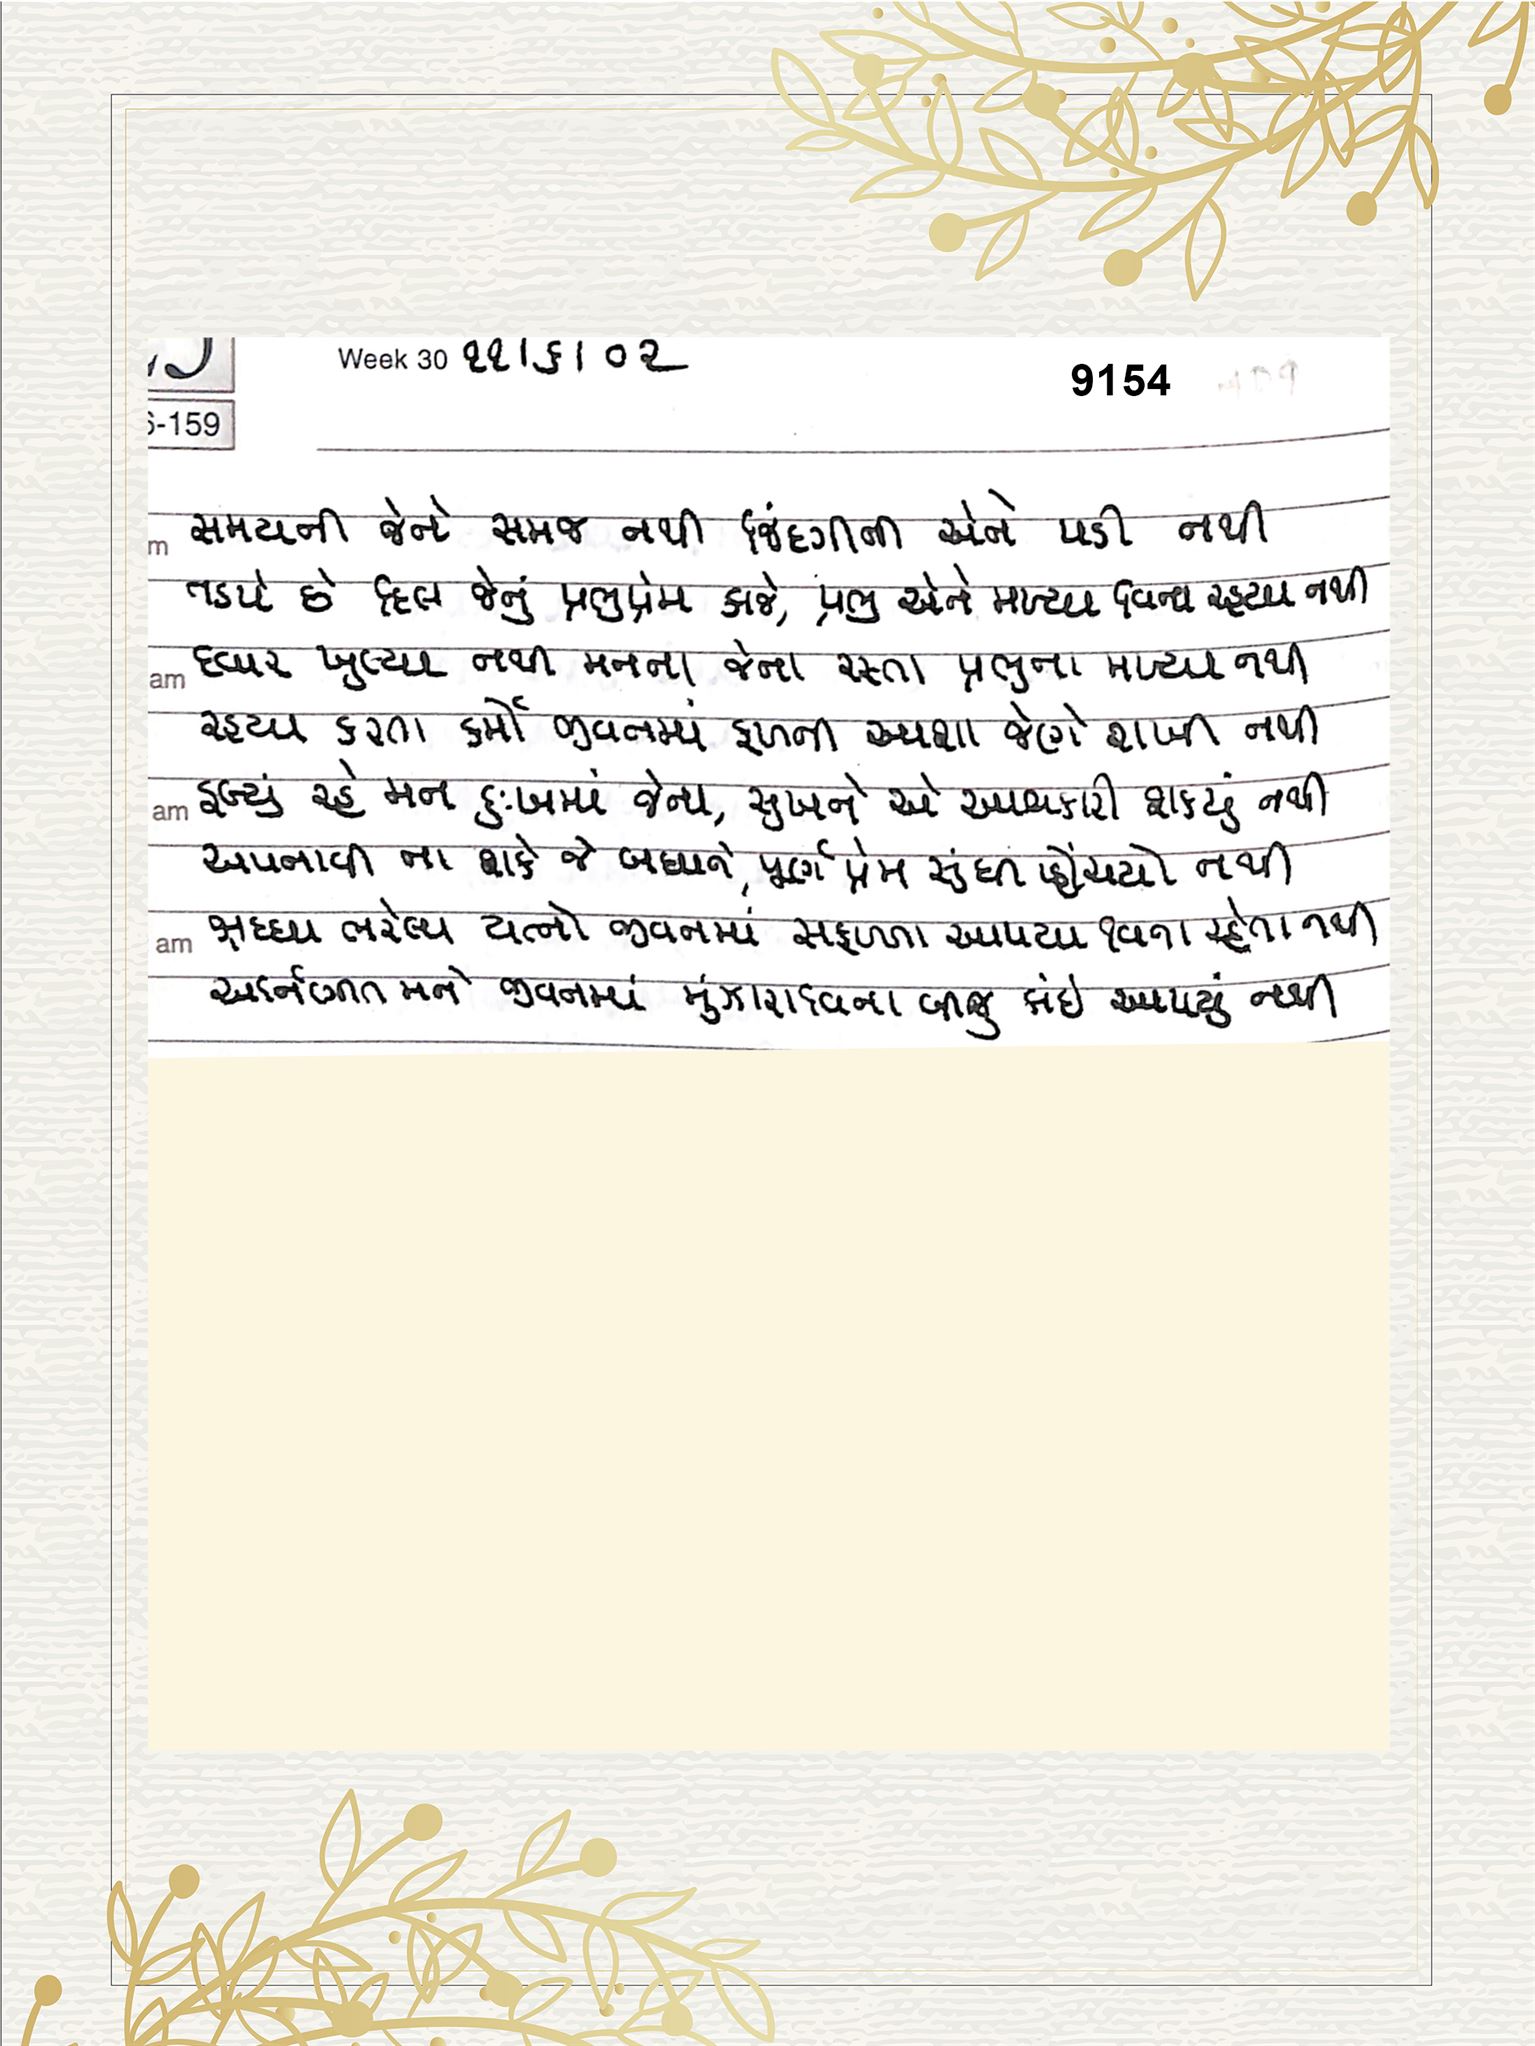 Week 30 ૧૧|૬|૦૨
9154
6-159
સમયની જેને સમજ નથી જિંદગીની એને પડી નથી
m
તડપે છે દિલ જેનું પ્રભુપ્રેમ કાજે, પ્રભુ એને મળ્યા વિના રહ્યા નથી
દ્વાર ખુલ્યા નથી મનના જેના રસ્તા પ્રભુના મળ્યા નથી
am
રહ્યા કરતા કર્મો જીવનમાં ફળની આશા જેણે રાખી નથી
ડૂબ્યું રહે મન દુઃખમાં જેના, સુખને એ આવકારી શક્યું નથી
am
અપનાવી ના શકે જે બધાને, પૂર્ણ પ્રેમ સુધી પહોંચ્યો નથી
શ્રધ્ધા ભરેલા યત્નો જીવનમાં સફળતા આપ્યા વિના રહેતા નથી
am
અનિર્ણીત મને જીવનમાં મુંઝારાવિના બીજુ કંઇ આપ્યું નથી